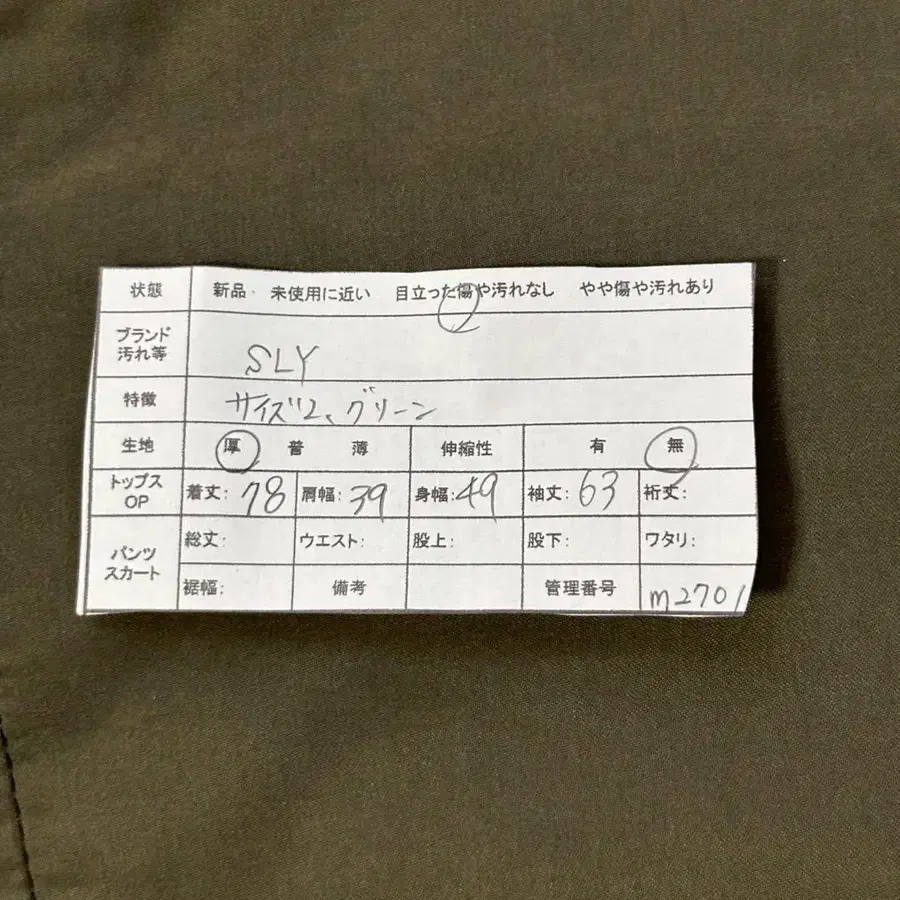 状態 新品 未使用に近い 目立った傷や汚れなし やや傷や汚れあり
ブランド
汚れ等
SLY
特徴 サイズ2、グリーン
生地 厚 普 薄 伸縮性 有 無
トップス
OP
着丈: 78 肩幅: 39 身幅: 49 袖丈: 63 裄丈:
パンツ
スカート
総丈: ウエスト: 股上: 股下: ワタリ:
裾幅: 備考 管理番号 m2701